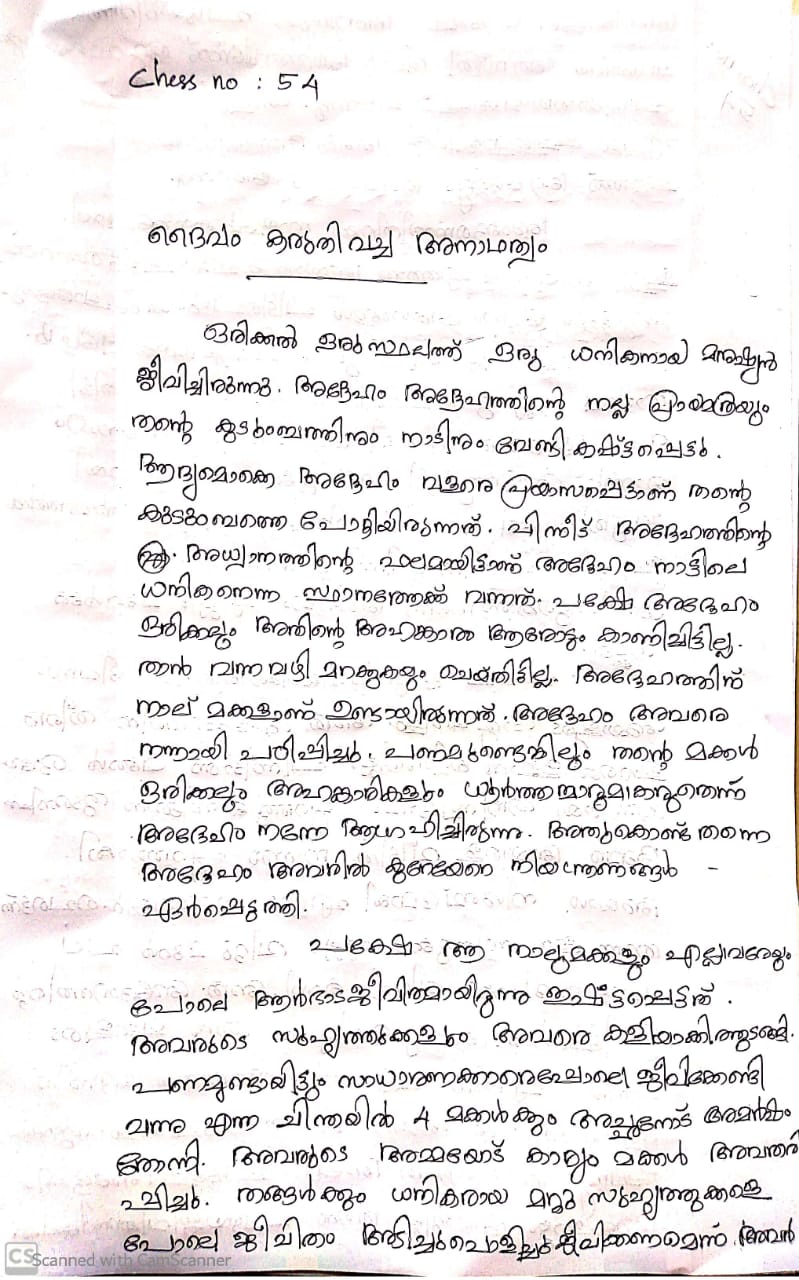 Chess no : 54
ദൈവം കരുതിവച്ച അനാഥത്വം
ഒരിക്കൽ ഒരു സ്ഥലത്ത് ഒരു ധനികനായ മനുഷ്യൻ
ജീവിച്ചിരുന്നു. അദ്ദേഹം അദ്ദേഹത്തിന്റെ നല്ല പ്രായമത്രയും
തന്റെ കുടുംബത്തിനും നാടിനും വേണ്ടി കഷ്ട്ടപ്പെട്ടു.
ആദ്യമൊക്കെ അദ്ദേഹം വളരെ പ്രയാസപ്പെട്ടാണ് തന്റെ
കുടുംബത്തെ പോറ്റിയിരുന്നത്. പിന്നീട് അദ്ദേഹത്തിന്റെ
അധ്വാനത്തിന്റെ ഫലമായിട്ടാണ് അദ്ദേഹം നാട്ടിലെ
ധനികനെന്ന സ്ഥാനത്തേക്ക് വന്നത്. പക്ഷേ അദ്ദേഹം
ഒരിക്കലും അതിന്റെ അഹങ്കാരം ആരോടും കാണിച്ചിട്ടില്ല.
താൻ വന്ന വഴി മറക്കുകയും ചെയ്തിട്ടില്ല. അദ്ദേഹത്തിന്
നാല് മക്കളാണ് ഉണ്ടായിരുന്നത്. അദ്ദേഹം അവരെ
നന്നായി പഠിപ്പിച്ചു. പണമുണ്ടെങ്കിലും തന്റെ മക്കൾ
ഒരിക്കലും അഹങ്കാരികളും ധൂർത്തന്മാരുമാകരുതെന്ന്
അദ്ദേഹം നന്നേ ആഗ്രഹിച്ചിരുന്നു. അതുകൊണ്ട് തന്നെ
അദ്ദേഹം അവരിൽ കുറേയേറെ നിയന്ത്രണങ്ങൾ -
ഏർപ്പെടുത്തി.
പക്ഷേ ആ നാലുമക്കളും എല്ലാവരേയും
പോലെ ആർഭാടജീവിതമായിരുന്നു ഇഷ്ട്ടപ്പെട്ടത്.
അവരുടെ സുഹൃത്തുക്കളും അവരെ കളിയാക്കിത്തുടങ്ങി.
പണമുണ്ടായിട്ടും സാധാരണക്കാരെപ്പോലെ ജീവിക്കേണ്ടി
വന്നു എന്ന ചിന്തയിൽ 4 മക്കൾക്കും അച്ഛനോട് അമർഷം
തോന്നി. അവരുടെ അമ്മയോട് കാര്യം മക്കൾ അവതരി
പ്പിച്ചു. തങ്ങൾക്കും ധനികരായ മറ്റു സുഹൃത്തുക്കളെ
പോലെ ജീവിതം അടിച്ചുപൊളിച്ചു ജീവിക്കണമെന്ന് അവർ
CS Scanned with CamScanner